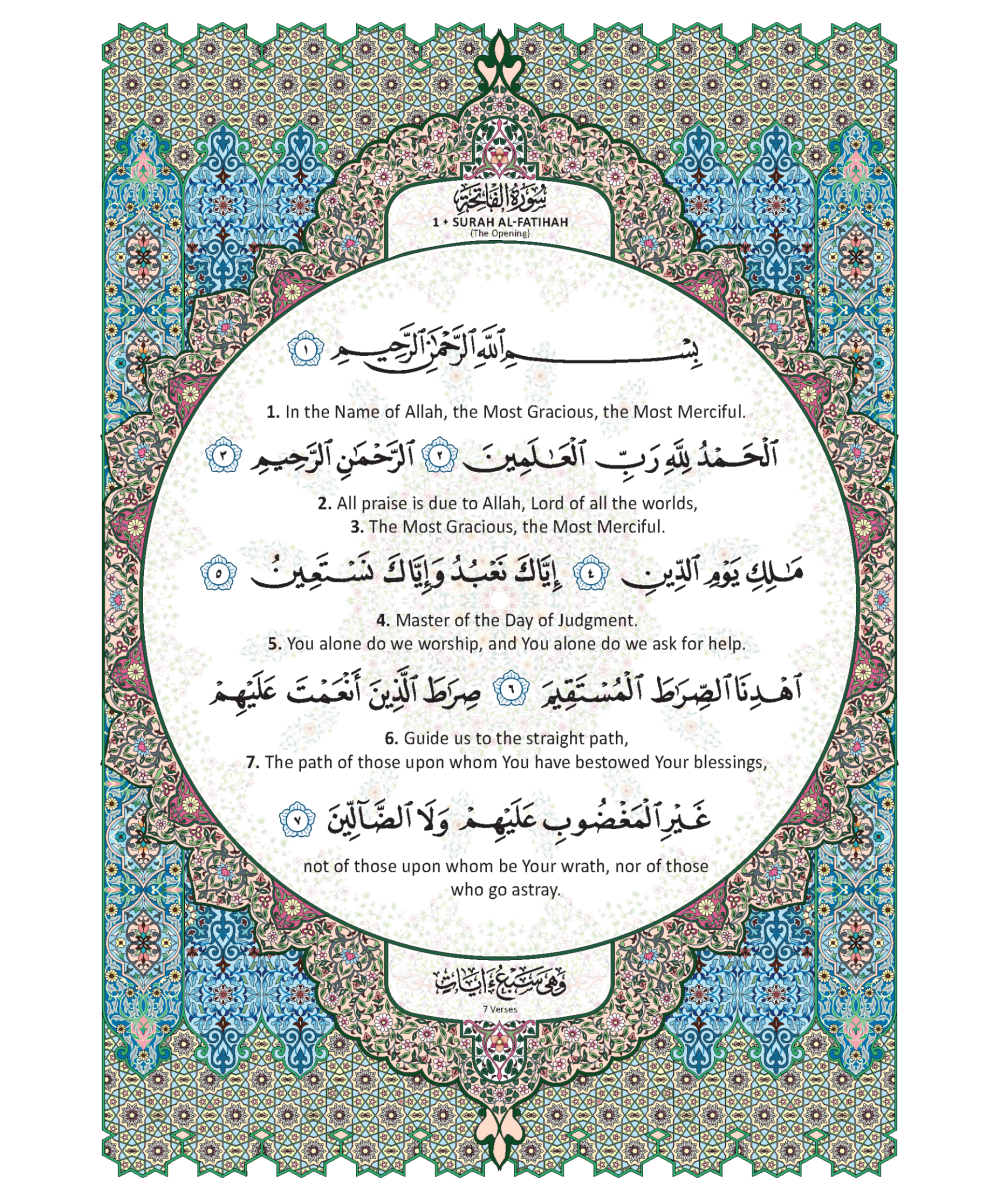 سُورَةُ الْفَاتِحَةِ
1 • SURAH AL-FATIHAH
(The Opening)
بِسْـــــــــمِ ٱللَّهِ ٱلرَّحْمَٰنِ ٱلرَّحِيمِ ١
1. In the Name of Allah, the Most Gracious, the Most Merciful.
ٱلْحَمْدُ لِلَّهِ رَبِّ ٱلْعَٰلَمِينَ ٢ ٱلرَّحْمَٰنِ ٱلرَّحِيمِ ٣
2. All praise is due to Allah, Lord of all the worlds,
3. The Most Gracious, the Most Merciful.
مَٰلِكِ يَوْمِ ٱلدِّينِ ٤ إِيَّاكَ نَعْبُدُ وَإِيَّاكَ نَسْتَعِينُ ٥
4. Master of the Day of Judgment.
5. You alone do we worship, and You alone do we ask for help.
ٱهْدِنَا ٱلصِّرَٰطَ ٱلْمُسْتَقِيمَ ٦ صِرَٰطَ ٱلَّذِينَ أَنْعَمْتَ عَلَيْهِمْ
6. Guide us to the straight path,
7. The path of those upon whom You have bestowed Your blessings,
غَيْرِ ٱلْمَغْضُوبِ عَلَيْهِمْ وَلَا ٱلضَّآلِّينَ ٧
not of those upon whom be Your wrath, nor of those
who go astray.
وَهِيَ سَبْعُ ءَايَاتٍ
7 Verses